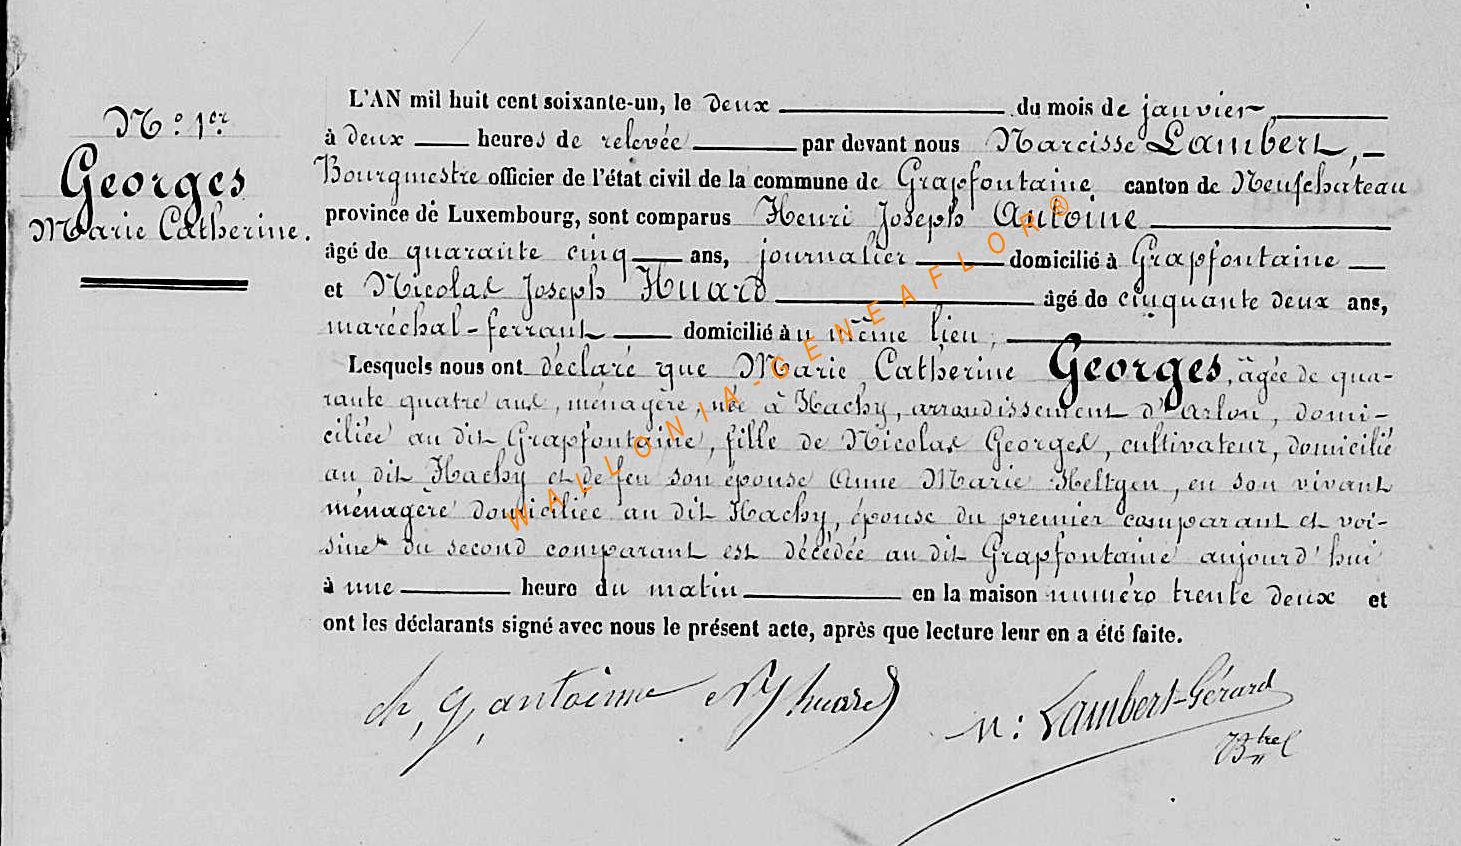 N.º 1er
Georges
Marie Catherine.
L'AN mil huit cent soixante-un, le deux du mois de janvier,
à deux heures de relevée par devant nous Narcisse Lambert,
Bourgmestre officier de l'état civil de la commune de Grapfontaine canton de Neufchâteau
province de Luxembourg, sont comparus Henri Joseph Antoine
âgé de quarante cinq ans, journalier domicilié à Grapfontaine
et Nicolas Joseph Huard âgé de cinquante deux ans,
maréchal-ferrant domicilié au même lieu,
Lesquels nous ont déclaré que Marie Catherine Georges, âgée de qua-
rante quatre ans, ménagère, née à Hachy, arrondissement d'Arlon, domi-
ciliée au dit Grapfontaine, fille de Nicolas Georges, cultivateur, domicilié
au dit Hachy et de feu son épouse Anne Marie Heltgen, en son vivant
ménagère domiciliée au dit Hachy, épouse du premier comparant et voi-
sine du second comparant est décédée au dit Grapfontaine aujourd'hui
à une heure du matin en la maison numéro trente deux et
ont les déclarants signé avec nous le présent acte, après que lecture leur en a été faite.
h, j, antoinne N J huard
N: Lambert-Gérard
Btrel
WALLONIA-GENEAFLOR®